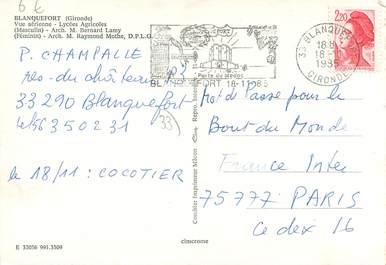 6 €
BLANQUEFORT (Gironde)
Vue aérienne - Lycées Agricoles
(Masculin) - Arch. M. Bernard Lamy
(Féminin) - Arch. M. Raymond Mothe, D.P.L.G.
P. CHAMPALLE
Rés. du Château P3
33290 Blanquefort
56350231
33
le 18/11 : COCOTIER
E 33056 991.3509
cimcrome
Combier Imprimeur Mâcon
Porte du Médoc
BLANQUEFORT 18-11-1985
33 BLANQUEFORT
18 H
18-11
1985
GIRONDE
2,20
Mot de Passe pour le
Bout du Monde
France Inter
75777 PARIS
Cedex 16